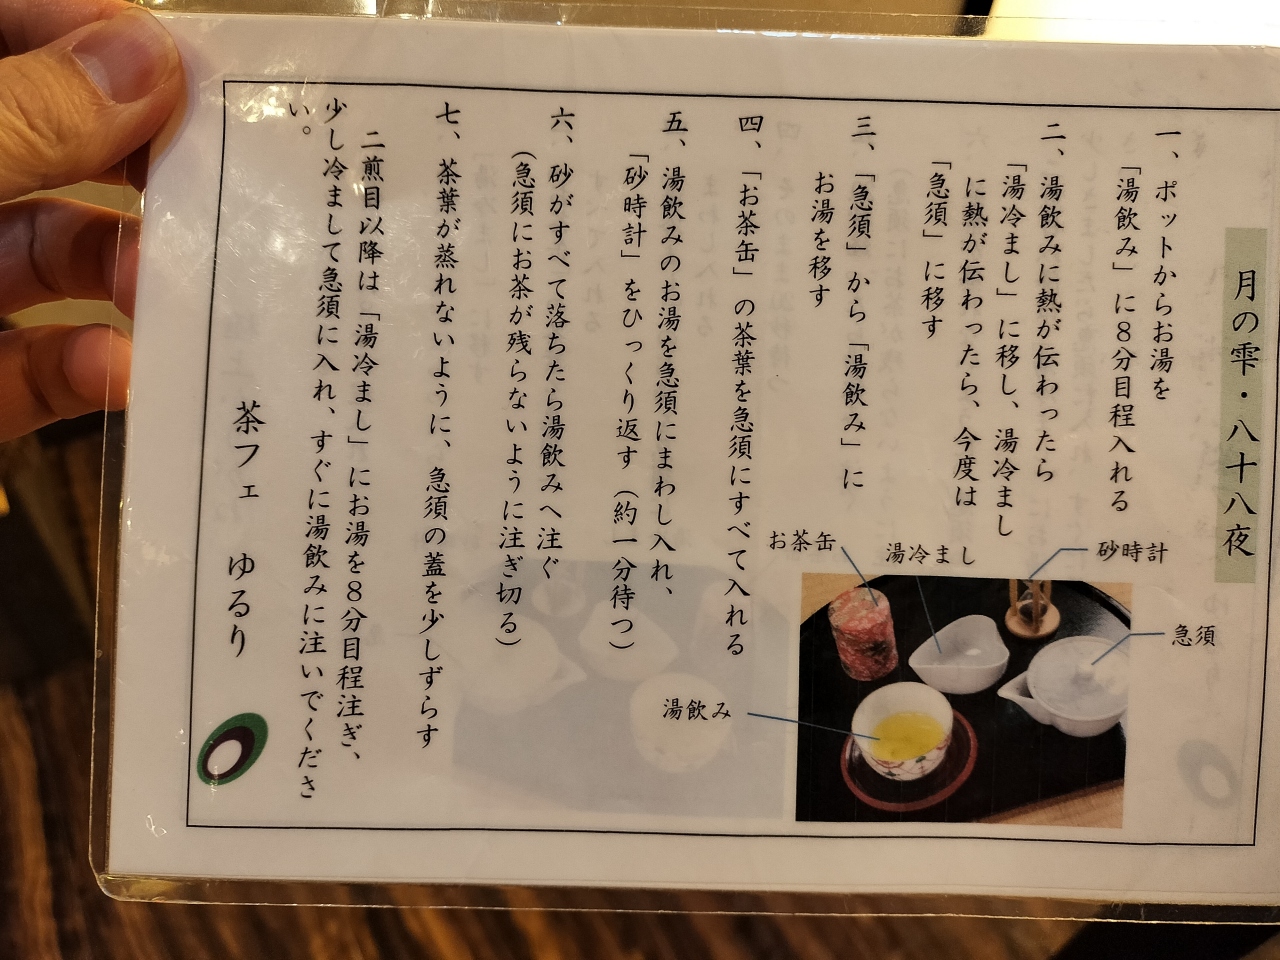 月の雫・八十八夜
一、ポットからお湯を
「湯飲み」に８分目程入れる
二、湯飲みに熱が伝わったら
「湯冷まし」に移し、湯冷まし
に熱が伝わったら、今度は
「急須」に移す
三、「急須」から「湯飲み」に
お湯を移す
四、「お茶缶」の茶葉を急須にすべて入れる
五、湯飲みのお湯を急須にまわし入れ、
「砂時計」をひっくり返す（約一分待つ）
六、砂がすべて落ちたら湯飲みへ注ぐ
（急須にお茶が残らないように注ぎ切る）
七、茶葉が蒸れないように、急須の蓋を少しずらす
二煎目以降は「湯冷まし」にお湯を８分目程注ぎ、
少し冷まして急須に入れ、すぐに湯飲みに注いでくださ
い。
茶フェ　ゆるり
砂時計
急須
湯冷まし
お茶缶
湯飲み